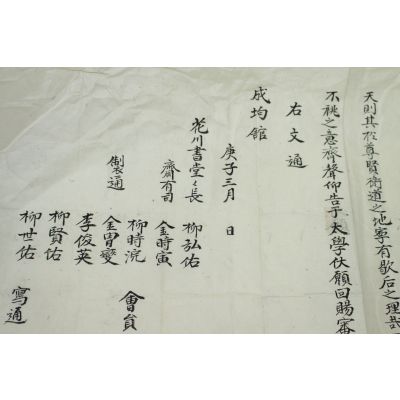 天則其於尊賢衛道之地寧有歇后之理哉
不祧之意齊聲仰告于 太學伏願回賜審
右文通
成均館
庚子三月 日
花川書堂々長 柳弘佑
齋有司 金時寅
柳時浣 會員
製通 金胄變
李俊英
柳賢佑
柳世佑 寫通